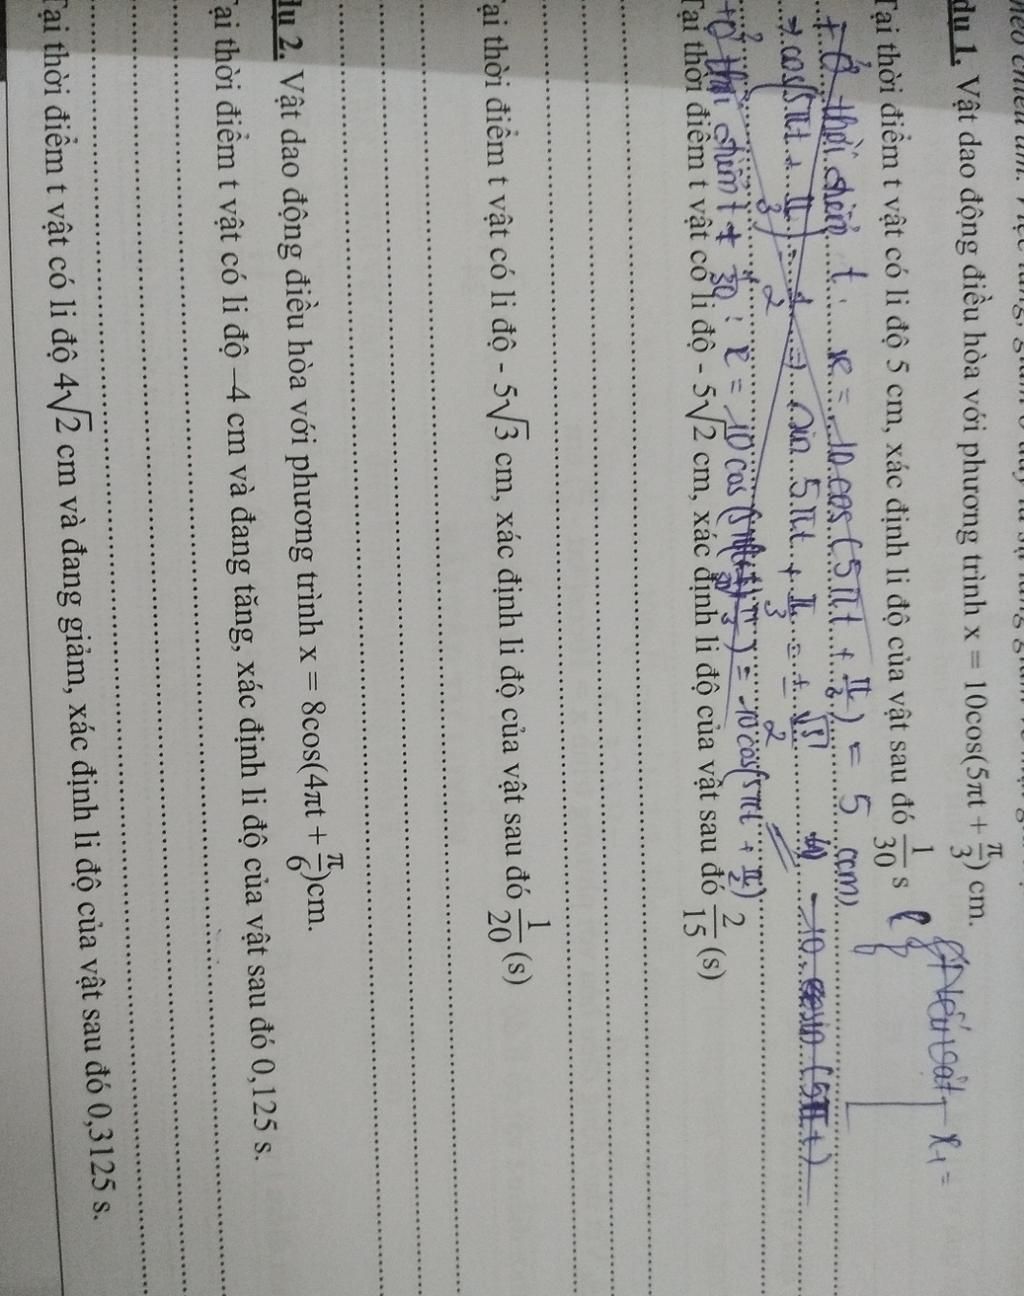 dụ 1. Vật dao động điều hòa với phương trình x = 10cos(5πt + π/3) cm.
Nếu vật x₁ =
Tại thời điểm t vật có li độ 5 cm, xác định li độ của vật sau đó 1/30 s
+ Ở thời điểm t : x = 10 cos (5πt + π/3) = 5 (cm)
⇒ cos(5πt + π/3) = 1/2 ⇒ sin 5πt + π/3 = ± √3/2
+ Ở thời điểm t + 1/30 : x = 10 cos = 10 cos(5πt + π/2)
Tại thời điểm t vật có li độ - 5√2 cm, xác định li độ của vật sau đó 2/15 (s)
ại thời điểm t vật có li độ - 5√3 cm, xác định li độ của vật sau đó 1/20 (s)
dụ 2. Vật dao động điều hòa với phương trình x = 8cos(4πt + π/6)cm.
ại thời điểm t vật có li độ –4 cm và đang tăng, xác định li độ của vật sau đó 0,125 s.
Tại thời điểm t vật có li độ 4√2 cm và đang giảm, xác định li độ của vật sau đó 0,3125 s.